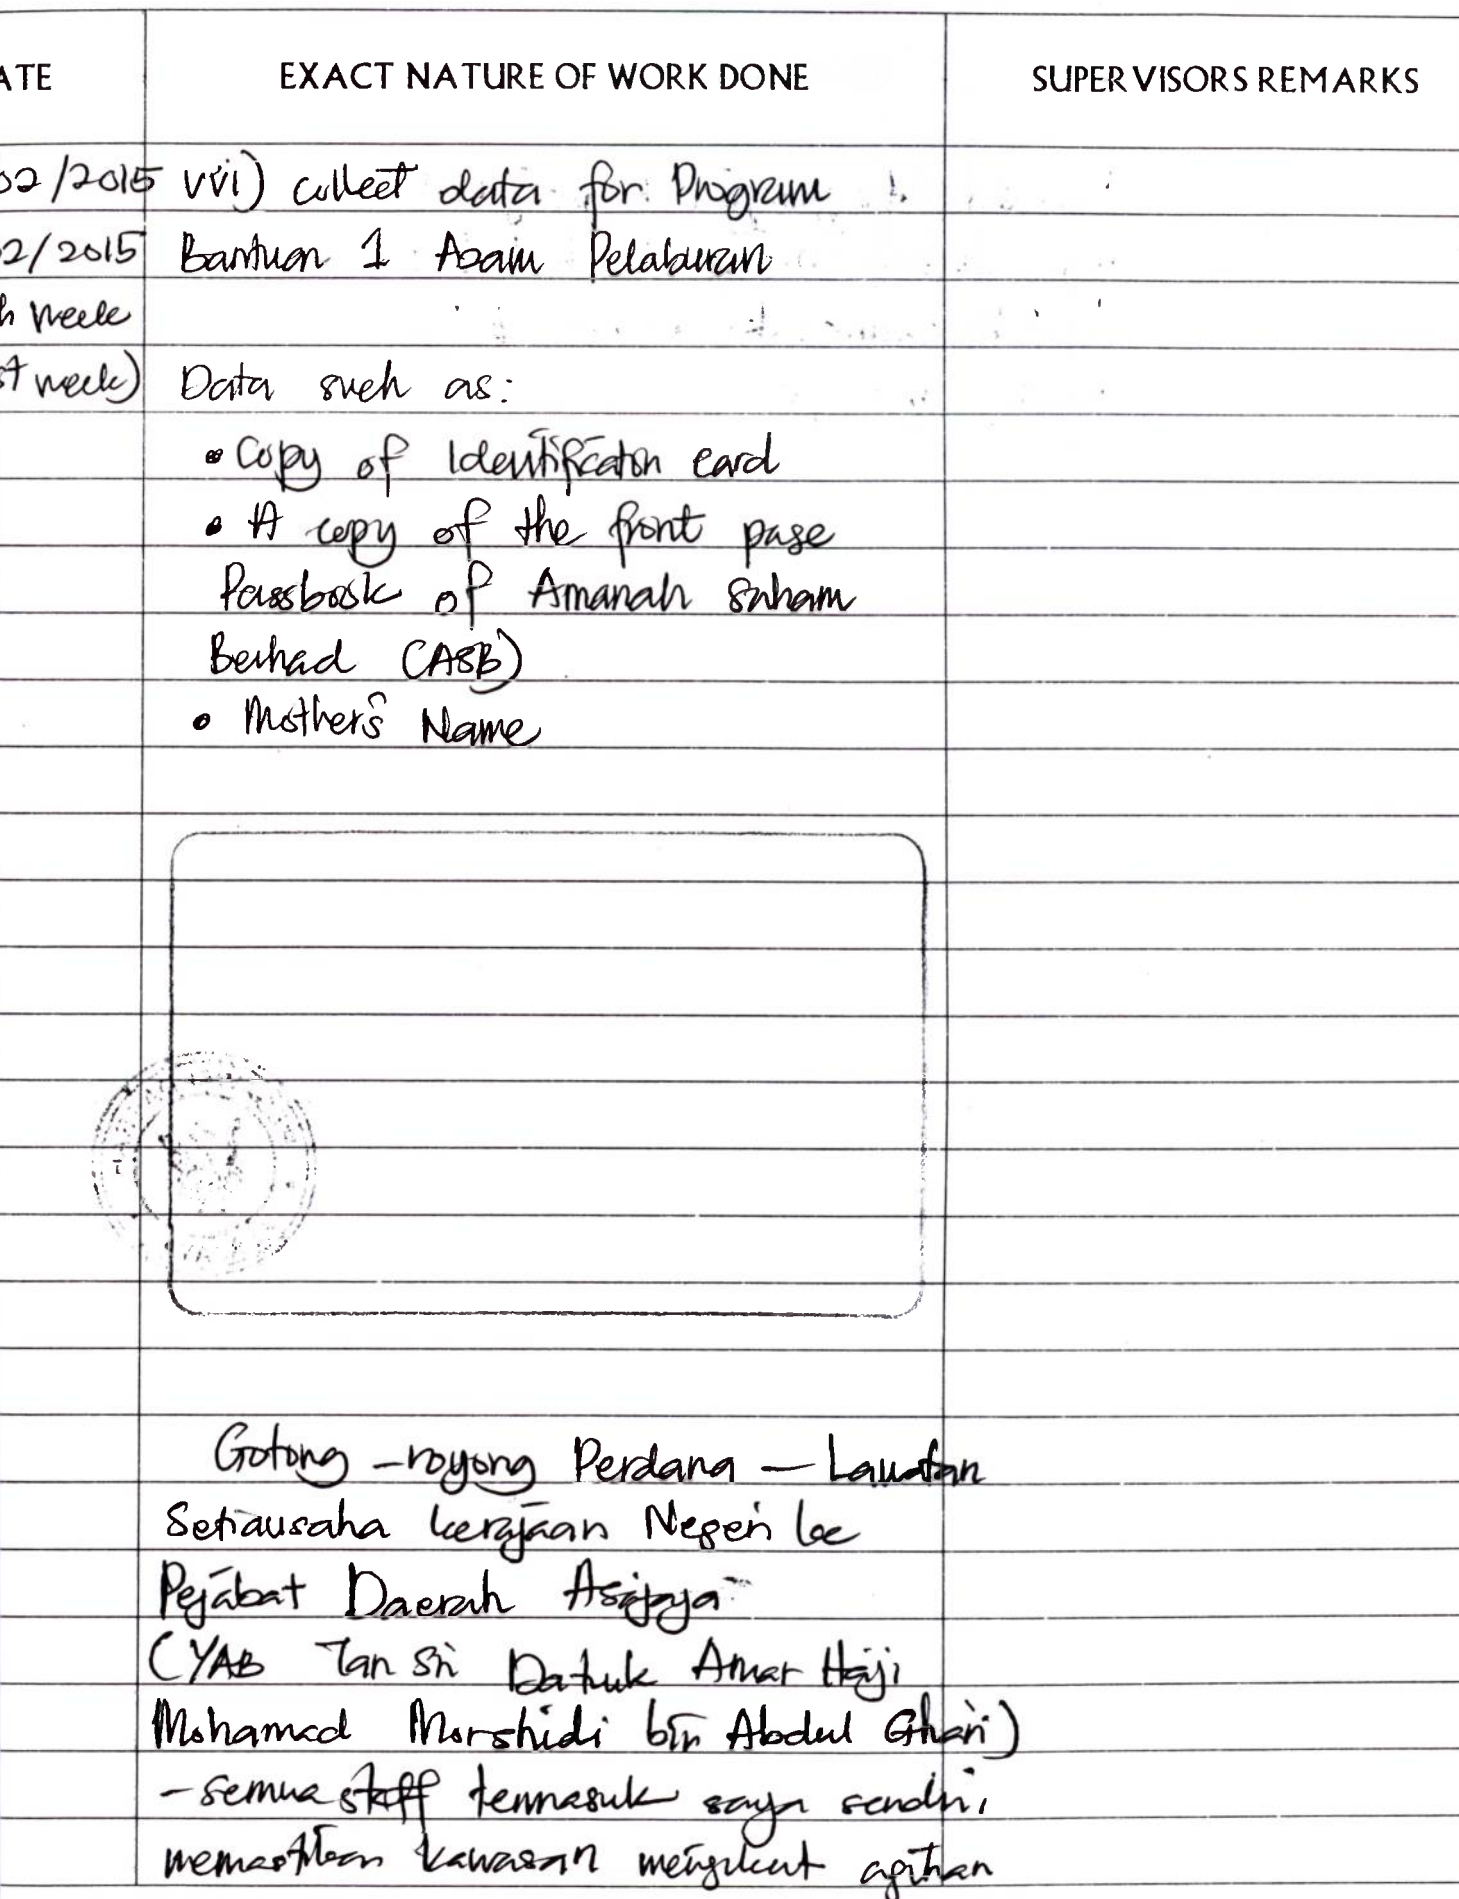 ATE EXACT NATURE OF WORK DONE SUPERVISORS REMARKS
02/2015 vvi) collect data for Program
02/2015 Bantuan 1 Azam Pelaburan
h week
st week) Data such as:
• Copy of Identification card
• A copy of the front page
Passbook of Amanah Saham
Berhad (ASB)
• Mother's Name
Gotong-royong Perdana – Lawatan
Setiausaha kerajaan Negeri ke
Pejabat Daerah Asajaya
(YAB Tan Sri Datuk Amar Haji
Mohamad Morshidi bin Abdul Ghani)
- semua staff termasuk saya sendiri
memastikan kawasan mengikut agihan